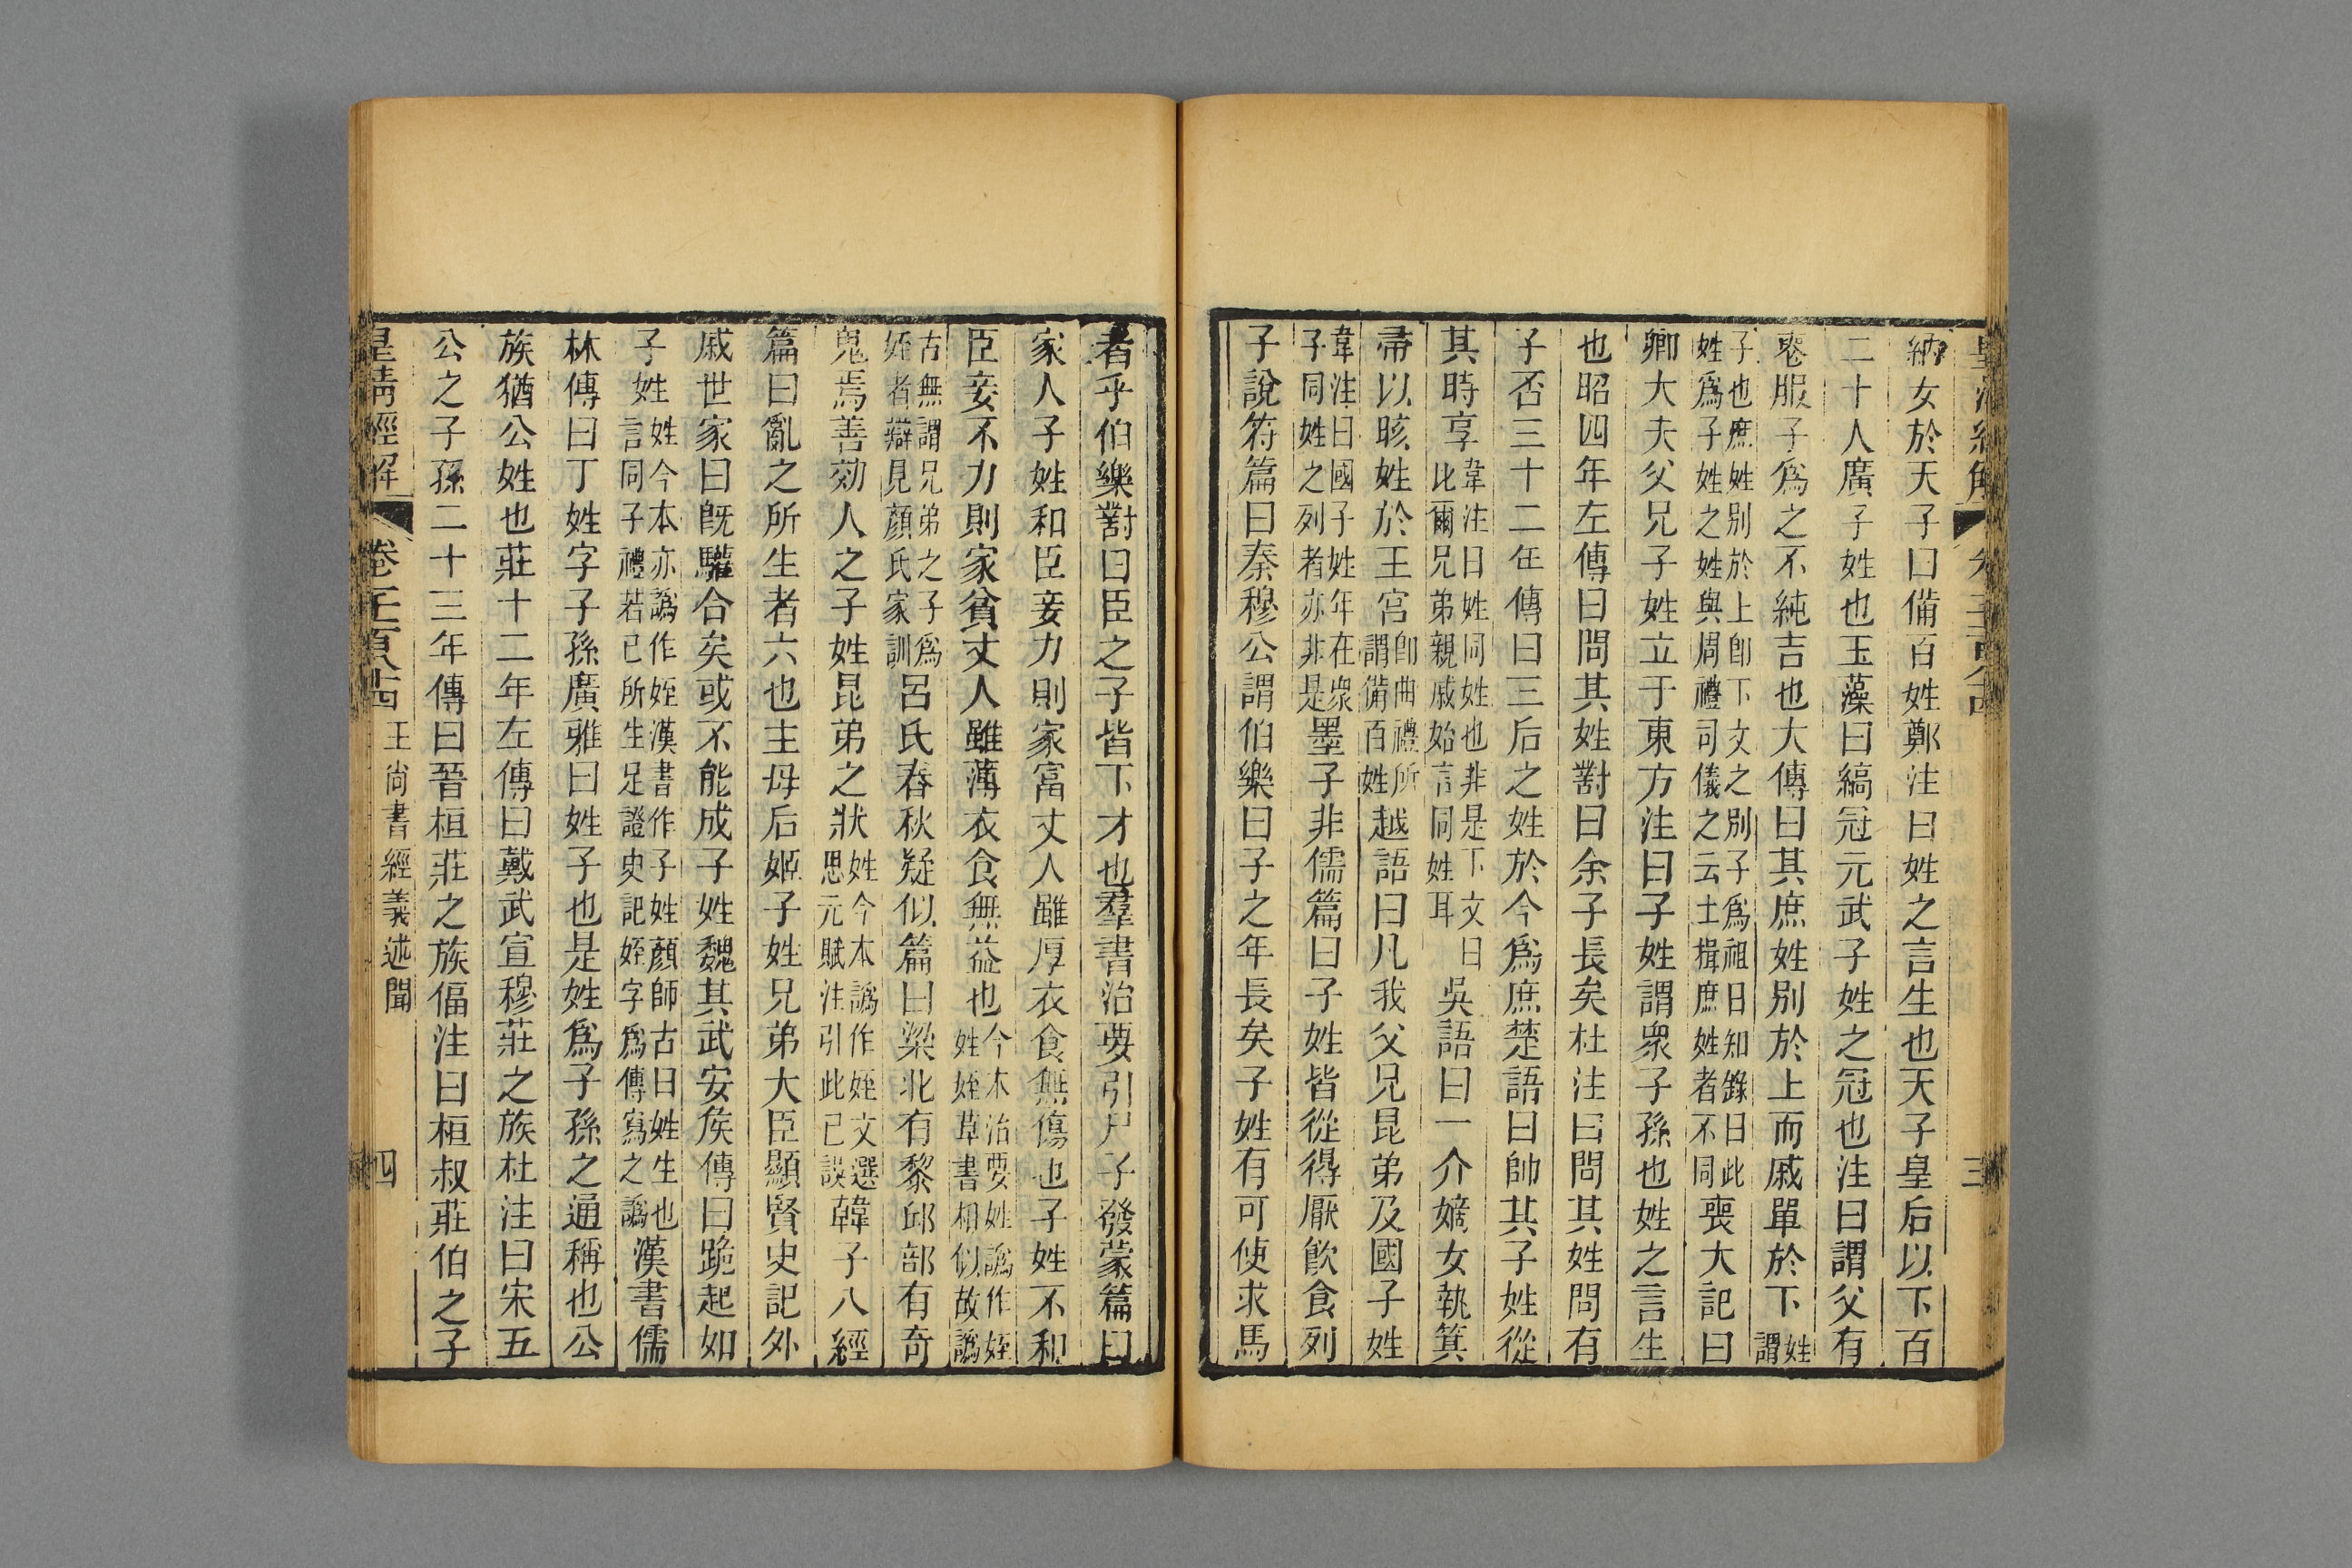 納女於天子曰備百姓鄭注曰姓之言生也天子皇后以下百
二十人廣子姓也玉藻曰縞冠元武子姓之冠也注曰謂父有
喪服子爲之不純吉也大傳曰其庶姓別於上而戚單於下姓謂
子也庶姓別於上卽下文之別子爲祖日知錄曰此
姓爲子姓之姓與周禮司儀之云土揖庶姓者不同喪大記曰
卿大夫父兄子姓立于東方注曰子姓謂衆子孫也姓之言生
也昭四年左傳曰問其姓對曰余子長矣杜注曰問其姓問有
子否三十二年傳曰三后之姓於今爲庶楚語曰帥其子姓從
其時享韋注曰姓同姓也非是下文曰
比爾兄弟親戚始言同姓耳吳語曰一介嫡女執箕
帚以晐姓於王宮卽曲禮所
謂備百姓越語曰凡我父兄昆弟及國子姓
韋注曰國子姓年在衆
子同姓之列者亦非是墨子非儒篇曰子姓皆從得厭飮食列
子說符篇曰秦穆公謂伯樂曰子之年長矣子姓有可使求馬
三
者乎伯樂對曰臣之子皆下才也羣書治要引尸子發蒙篇曰
家人子姓和臣妾力則家富丈人雖厚衣食無傷也子姓不和
臣妾不力則家貧丈人雖薄衣食無益也今本治要姓譌作姪
姓姪草書相似故譌
古無謂兄弟之子爲
姪者辯見顏氏家訓呂氏春秋疑似篇曰梁北有黎邱部有奇
鬼焉善効人之子姓昆弟之狀姓今本譌作姪文選
思元賦注引此已誤韓子八經
篇曰亂之所生者六也主母后姬子姓兄弟大臣顯賢史記外
戚世家曰旣驩合矣或不能成子姓魏其武安矦傳曰跪起如
子姓姓今本亦譌作姪漢書作子姓顏師古曰姓生也
言同子禮若已所生足證史記姪字爲傳寫之譌漢書儒
林傳曰丁姓字子孫廣雅曰姓子也是姓爲子孫之通稱也公
族猶公姓也莊十二年左傳曰戴武宣穆莊之族杜注曰宋五
公之子孫二十三年傳曰晉桓莊之族偪注曰桓叔莊伯之子
皇清經解 王尚書經義述聞 四